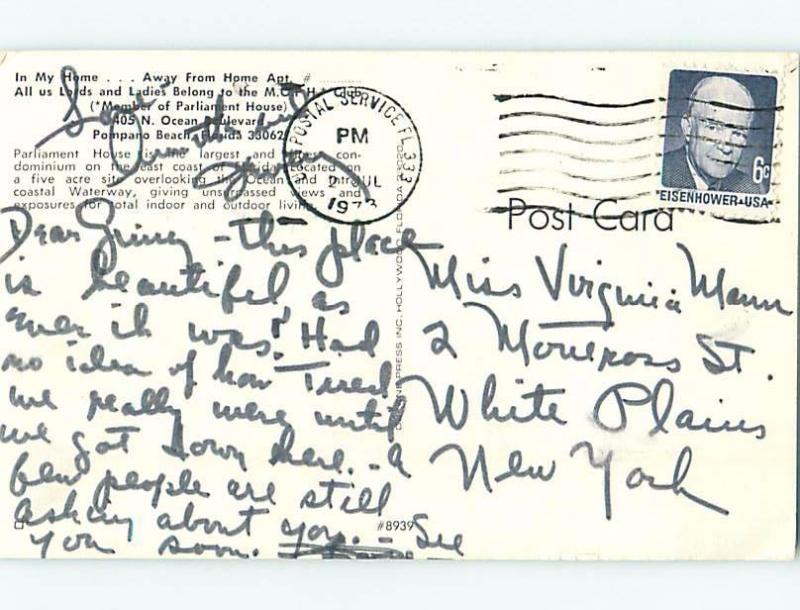 In My Home . . . Away From Home Apt. #
All us Lords and Ladies Belong to the M.O.P.H. Club
(*Member of Parliament House)
405 N. Ocean Boulevard
Pompano Beach, Florida 33062
Parliament House is the largest and finest con-
dominium on the east coast of Florida. Located on
a five acre site overlooking the Ocean and Intra-
coastal Waterway, giving unsurpassed views and
exposures for total indoor and outdoor living.
POSTAL SERVICE FL 333
PM
2 JUL
1973
6c
EISENHOWER·USA
Post Card
Dear Ginny - this place
is beautiful as
ever it was! Had
no idea of how Tired
we really were until
we got down here. - a
few people are still
asking about you. - See
you soon.
Love
PRESS INC. HOLLYWOOD, FLORIDA
#8939
Miss Virginia Mann
2 Montross St.
White Plains
New York